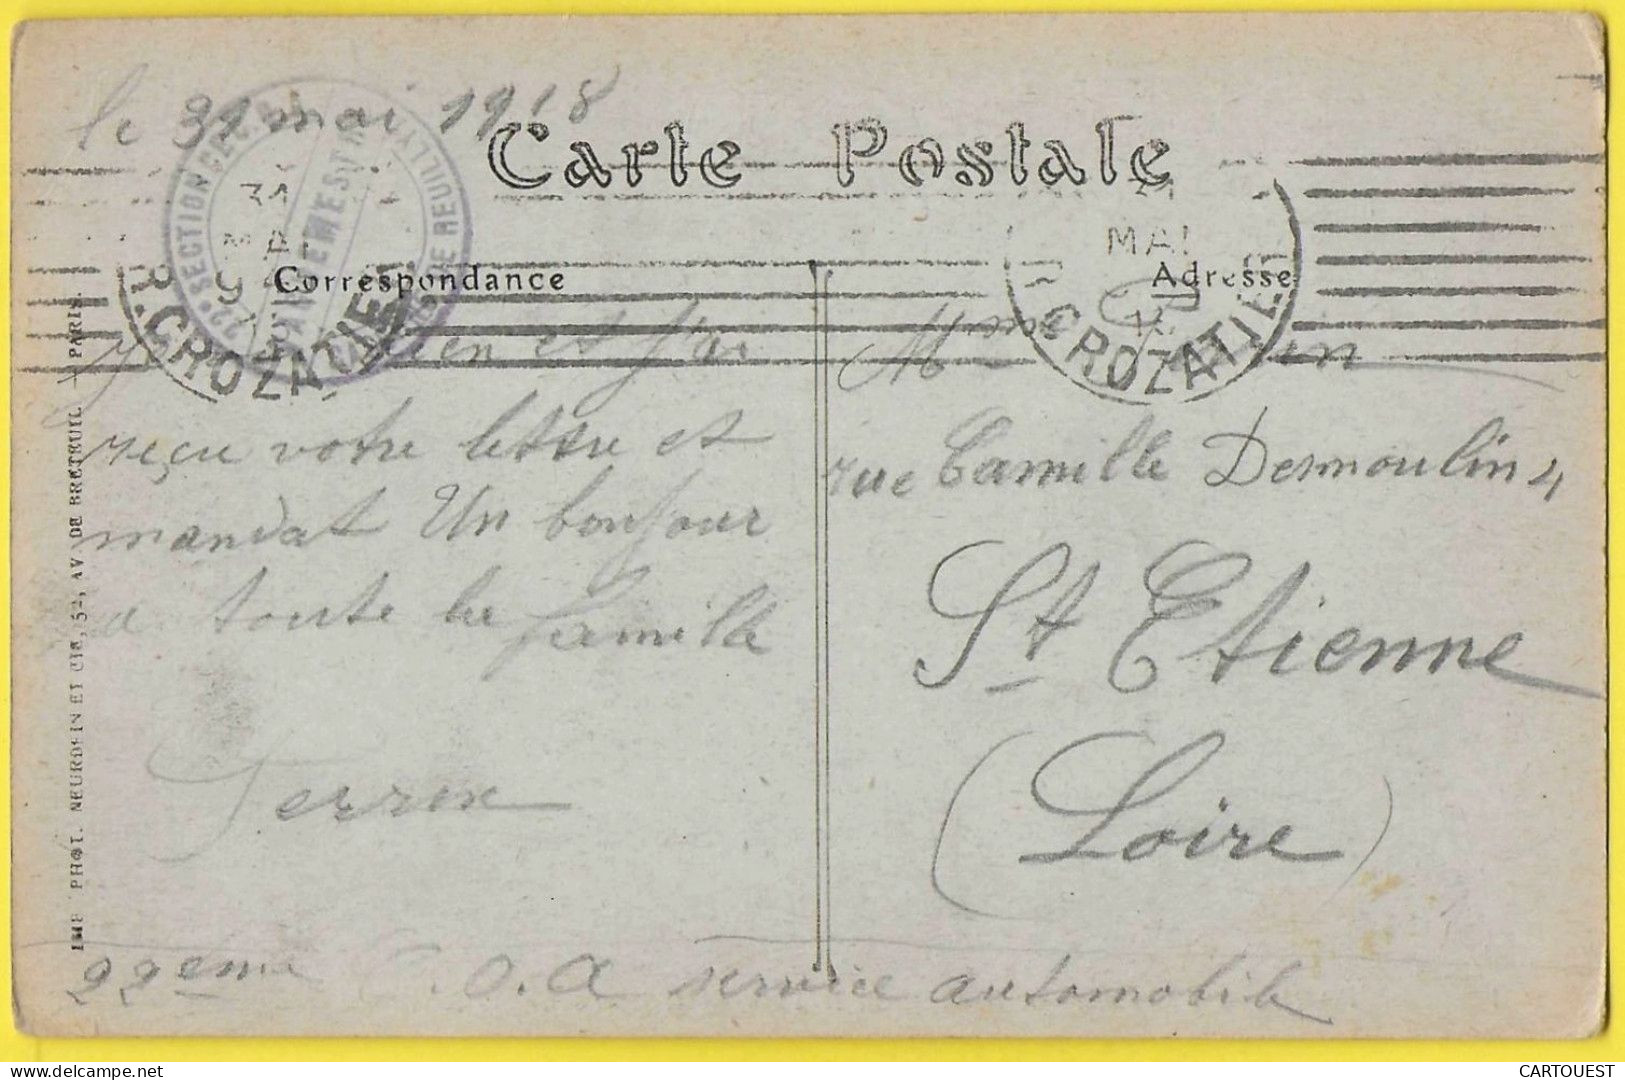 le 31 mai 1918
Carte Postale
22e SECTION
SEMESTRE
DE REUILLY
31
MAI
9
R. CROZATIER
MAI
CROZATIER
Correspondance
Adresse
bien et j'ai
reçu votre lettre et
mandat Un bonjour
a toute la famille
Perrin
Mme
rue Camille Desmoulin 4
St Etienne
(Loire)
22eme C.O.A service automobile
IMP. PHOT. NEURDEIN ET CIE, 52, AV. DE BRETEUIL - PARIS.
CARTOUEST